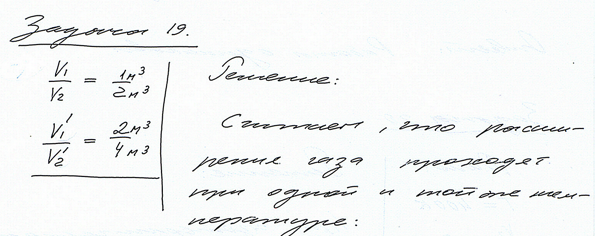 Задача 19.
V₁/V₂ = 1м³/2м³
Решение:
V₁'/V₂' = 2м³/4м³
Считаем, что расши-
рение газа проходят
при одной и той же тем-
пературе: